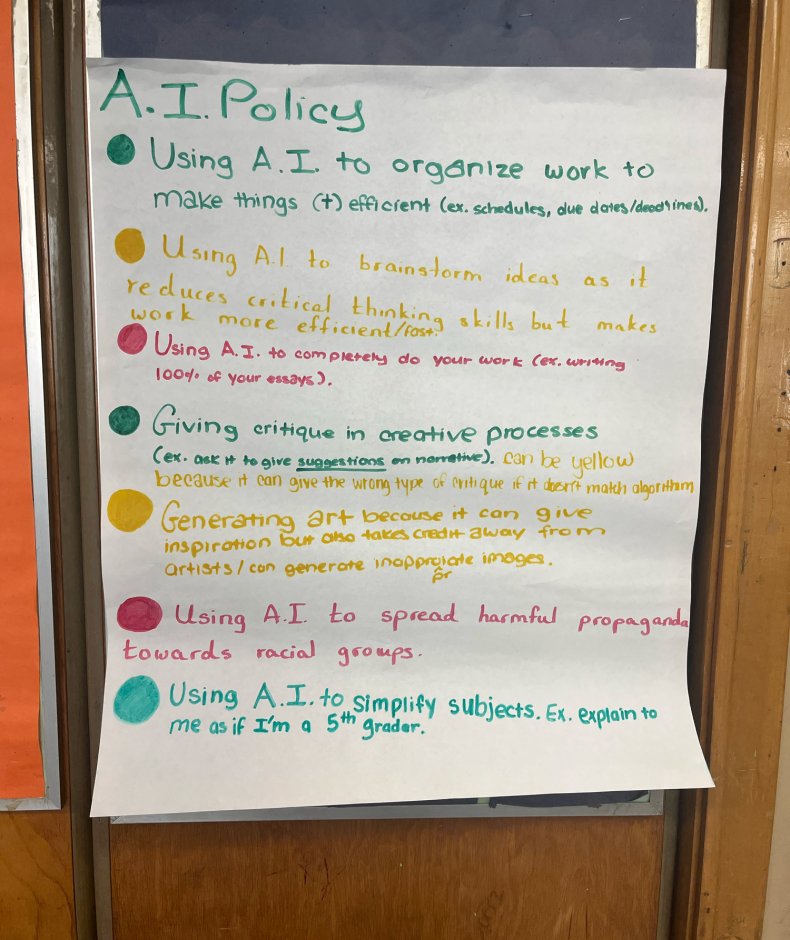 A.I. Policy
Using A.I. to organize work to
make things (+) efficient (ex. schedules, due dates/deadlines).
Using A.I. to brainstorm ideas as it
reduces critical thinking skills but makes
work more efficient/fast.
Using A.I. to completely do your work (ex. writing
100% of your essays).
Giving critique in creative processes
(ex. ask it to give suggestions on narrative). can be yellow
because it can give the wrong type of critique if it doesn't match algorithm
Generating art because it can give
inspiration but also takes credit away from
artists/can generate inapproiate images.
pr
Using A.I. to spread harmful propaganda
towards racial groups.
Using A.I. to simplify subjects. Ex. explain to
me as if I'm a 5th grader.